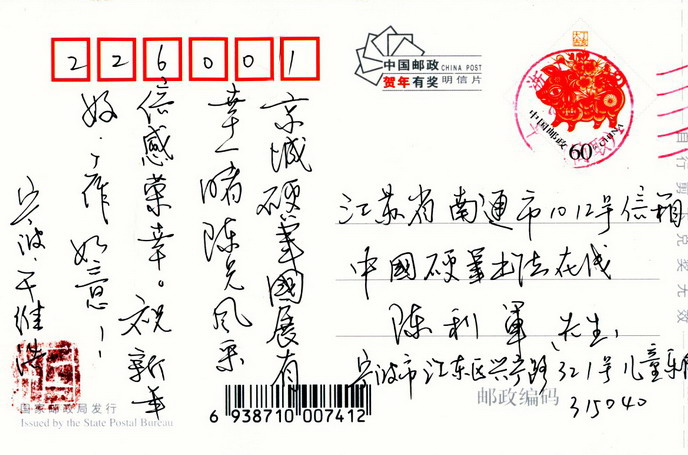 226001
中国邮政 CHINA POST
贺年有奖 明信片
中国邮政
60
CHINA
京城硬笔國展有
幸一睹陈兄风采
倍感荣幸。祝新年
好、工作如意！
宁波·王维浩
江苏省南通市1012号信箱
中國硬筆书法在线
陈利軍 先生
宁波市江东区兴宁路321号儿童乐
邮政编码
315040
国家邮政局发行
Issued by the State Postal Bureau
6 938710 007412